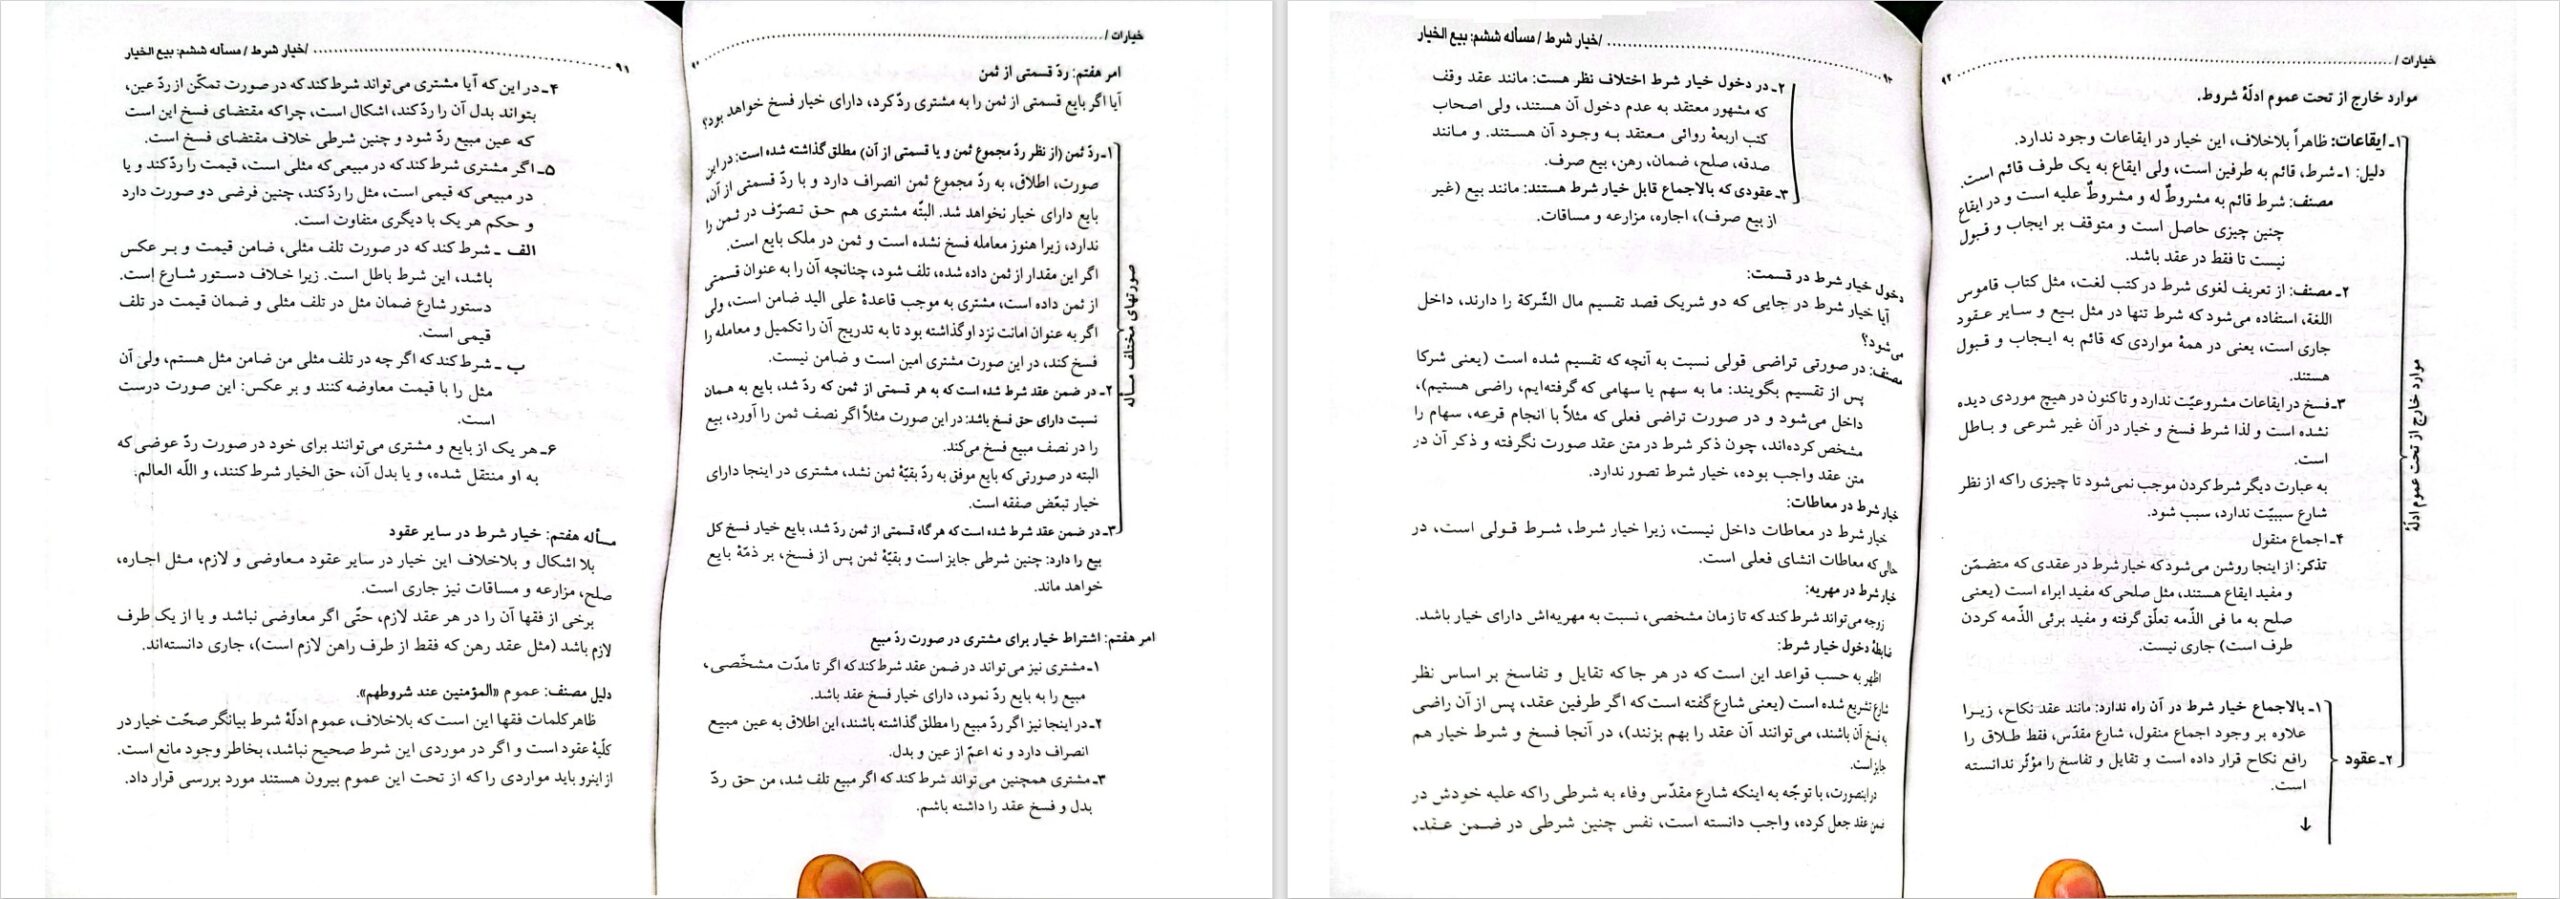 خیارات / ........................................
۹۰
امر هفتم: ردّ قسمتی از ثمن
آیا اگر بایع قسمتی از ثمن را به مشتری ردّ کرد، دارای خیار فسخ خواهد بود؟
صورتهای مختلف مسأله
۱ـ ردّ ثمن (از نظر ردّ مجموع ثمن و یا قسمتی از آن) مطلق گذاشته شده است: در این
صورت، اطلاق، به ردّ مجموع ثمن انصراف دارد و با ردّ قسمتی از آن،
بایع دارای خیار نخواهد شد. البتّه مشتری هم حق تـصرّف در ثـمن را
ندارد، زیرا هنوز معامله فسخ نشده است و ثمن در ملک بایع است.
اگر این مقدار از ثمن داده شده، تلف شود، چنانچه آن را به عنوان قسمتی
از ثمن داده است، مشتری به موجب قاعدهٔ علی الید ضامن است، ولی
اگر به عنوان امانت نزد او گذاشته بود تا به تدریج آن را تکمیل و معامله را
فسخ کند، در این صورت مشتری امین است و ضامن نیست.
۲ـ در ضمن عقد شرط شده است که به هر قسمتی از ثمن که ردّ شد، بایع به همان
نسبت دارای حق فسخ باشد: در این صورت مثلاً اگر نصف ثمن را آورد، بیع
را در نصف مبیع فسخ می‌کند.
البته در صورتی که بایع موفق به ردّ بقیّهٔ ثمن نشد، مشتری در اینجا دارای
خیار تبعّض صفقه است.
۳ـ در ضمن عقد شرط شده است که هرگاه قسمتی از ثمن ردّ شد، بایع خیار فسخ کل
بیع را دارد: چنین شرطی جایز است و بقیّهٔ ثمن پس از فسخ، بر ذمّهٔ بایع
خواهد ماند.
امر هفتم: اشتراط خیار برای مشتری در صورت ردّ مبیع
۱ـ مشتری نیز می‌تواند در ضمن عقد شرط کند که اگر تا مدّت مشخّصی،
مبیع را به بایع ردّ نمود، دارای خیار فسخ عقد باشد.
۲ـ در اینجا نیز اگر ردّ مبیع را مطلق گذاشته باشند، این اطلاق به عین مبیع
انصراف دارد و نه اعمّ از عین و بدل.
۳ـ مشتری همچنین می‌تواند شرط کند که اگر مبیع تلف شد، من حق ردّ
بدل و فسخ عقد را داشته باشم.
/خیار شرط / مسأله ششم: بیع الخیار ........................................
۹۱
۴ـ در این که آیا مشتری می‌تواند شرط کند که در صورت تمکّن از ردّ عین،
بتواند بدل آن را ردّ کند، اشکال است، چرا که مقتضای فسخ این است
که عین مبیع ردّ شود و چنین شرطی خلاف مقتضای فسخ است.
۵ـ اگر مشتری شرط کند که در مبیعی که مثلی است، قیمت را ردّ کند و یا
در مبیعی که قیمی است، مثل را ردّ کند، چنین فرضی دو صورت دارد
و حکم هر یک با دیگری متفاوت است.
الف ـ شرط کند که در صورت تلف مثلی، ضامن قیمت و بـر عکس
باشد، این شرط باطل است. زیرا خلاف دستور شـارع است.
دستور شارع ضمان مثل در تلف مثلی و ضمان قیمت در تلف
قیمی است.
ب ـ شرط کند که اگر چه در تلف مثلی من ضامن مثل هستم، ولی آن
مثل را با قیمت معاوضه کنند و بر عکس: این صورت درست
است.
۶ـ هر یک از بایع و مشتری می‌توانند برای خود در صورت ردّ عوضی که
به او منتقل شده، و یا بدل آن، حق الخیار شرط کنند، و اللّه العالم.
مسأله هفتم: خیار شرط در سایر عقود
بلا اشکال و بلاخلاف این خیار در سایر عقود مـعاوضی و لازم، مـثل اجـاره،
صلح، مزارعه و مساقات نیز جاری است.
برخی از فقها آن را در هر عقد لازم، حتّی اگر معاوضی نباشد و یا از یک طرف
لازم باشد (مثل عقد رهن که فقط از طرف راهن لازم است)، جاری دانسته‌اند.
دلیل مصنف: عموم «المؤمنین عند شروطهم».
ظاهر کلمات فقها این است که بلاخلاف، عموم ادلّهٔ شرط بیانگر صحّت خیار در
کلّیهٔ عقود است و اگر در موردی این شرط صحیح نباشد، بخاطر وجود مانع است.
از اینرو باید مواردی را که از تحت این عموم بیرون هستند مورد بررسی قرار داد.
خیارات / ........................................
۹۲
موارد خارج از تحت عموم ادلّهٔ شروط.
موارد خارج از تحت عموم ادلّهٔ
۱ـ ایقاعات: ظاهراً بلاخلاف، این خیار در ایقاعات وجود ندارد.
دلیل: ۱ـ شرط، قائم به طرفین است، ولی ایقاع به یک طرف قائم است.
مصنف: شرط قائم به مشروطٌ له و مشروطٌ علیه است و در ایقاع
چنین چیزی حاصل است و متوقف بر ایجاب و قـبول
نیست تا فقط در عقد باشد.
۲ـ مصنف: از تعریف لغوی شرط در کتب لغت، مثل کتاب قاموس
اللغة، استفاده می‌شود که شرط تنها در مثل بـیع و سـایر عـقود
جاری است، یعنی در همهٔ مواردی که قائم به ایـجاب و قـبول
هستند.
۳ـ فسخ در ایقاعات مشروعیّت ندارد و تاکنون در هیچ موردی دیده
نشده است و لذا شرط فسخ و خیار در آن غیر شرعی و بـاطل
است.
به عبارت دیگر شرط کردن موجب نمی‌شود تا چیزی را که از نظر
شارع سببیّت ندارد، سبب شود.
۴ـ اجماع منقول
تذکر: از اینجا روشن می‌شود که خیار شرط در عقدی که متضمّن
و مفید ایقاع هستند، مثل صلحی که مفید ابراء است (یعنی
صلح به ما فی الذّمه تعلّق گرفته و مفید برئی الذّمه کردن
طرف است) جاری نیست.
۲ـ عقود
۱ـ بالاجماع خیار شرط در آن راه ندارد: مانند عقد نکاح، زیـرا
علاوه بر وجود اجماع منقول، شارع مقدّس، فقط طـلاق را
رافع نکاح قرار داده است و تقایل و تفاسخ را مؤثّر ندانسته
است.
↓
/خیار شرط / مسأله ششم: بیع الخیار ........................................
۲ـ در دخول خیار شرط اختلاف نظر هست: مانند عقد وقف
که مشهور معتقد به عدم دخول آن هستند، ولی اصحاب
کتب اربعهٔ روائی مـعتقد بـه وجـود آن هستند. و مـانند
صدقه، صلح، ضمان، رهن، بیع صرف.
۳ـ عقودی که بالاجماع قابل خیار شرط هستند: مانند بیع (غیر
از بیع صرف)، اجاره، مزارعه و مساقات.
دخول خیار شرط در قسمت:
آیا خیار شرط در جایی که دو شریک قصد تقسیم مال الشّرکة را دارند، داخل
می‌شود؟
مصنف: در صورتی تراضی قولی نسبت به آنچه که تقسیم شده است (یعنی شرکا
پس از تقسیم بگویند: ما به سهم یا سهامی که گرفته‌ایم، راضی هستیم)،
داخل می‌شود و در صورت تراضی فعلی که مثلاً با انجام قرعه، سهام را
مشخص کرده‌اند، چون ذکر شرط در متن عقد صورت نگرفته و ذکر آن در
متن عقد واجب بوده، خیار شرط تصور ندارد.
خیار شرط در معاطات:
خیار شرط در معاطات داخل نیست، زیرا خیار شرط، شـرط قـولی است، در
حالی که معاطات انشای فعلی است.
خیار شرط در مهریه:
زوجه می‌تواند شرط کند که تا زمان مشخصی، نسبت به مهریه‌اش دارای خیار باشد.
ضابطهٔ دخول خیار شرط:
اظهر به حسب قواعد این است که در هر جا که تقایل و تفاسخ بر اساس نظر
شارع تشریع شده است (یعنی شارع گفته است که اگر طرفین عقد، پس از آن راضی
به فسخ آن باشند، می‌توانند آن عقد را بهم بزنند)، در آنجا فسخ و شرط خیار هم
جایز است.
در اینصورت، با توجّه به اینکه شارع مقدّس وفاء به شرطی را که علیه خودش در
ضمن عقد جعل کرده، واجب دانسته است، نفس چنین شرطی در ضـمن عـقد،